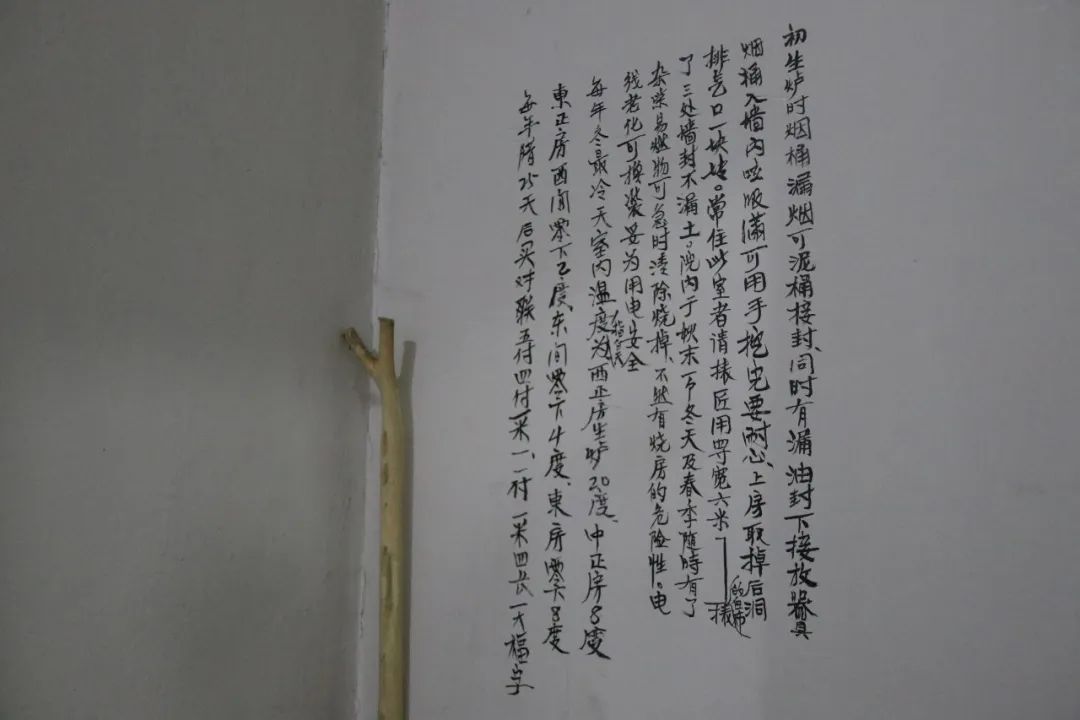 初生炉时烟桶漏烟可泥桶接封、同时有漏油封下接放器具
烟桶入墙内吸满可用手挖完要耐心、上房取掉后洞
排气口一块砖。常住此室者请裱匠用学宽六米
的白布
裱
了三处墙封不漏土。院内于秋末一下冬天及春季随時有了
杂柴易燃物可急时清除烧掉、不然有烧房的危险性。电
线老化可换装妥为用电安全
每年冬最冷天室内温度为西正房生炉20度、中正房8度
東正房西间零下2度、东间零下4度、東房零下8度
每年腊25天后买对联五付四付一米一、一付一米四长一大福字